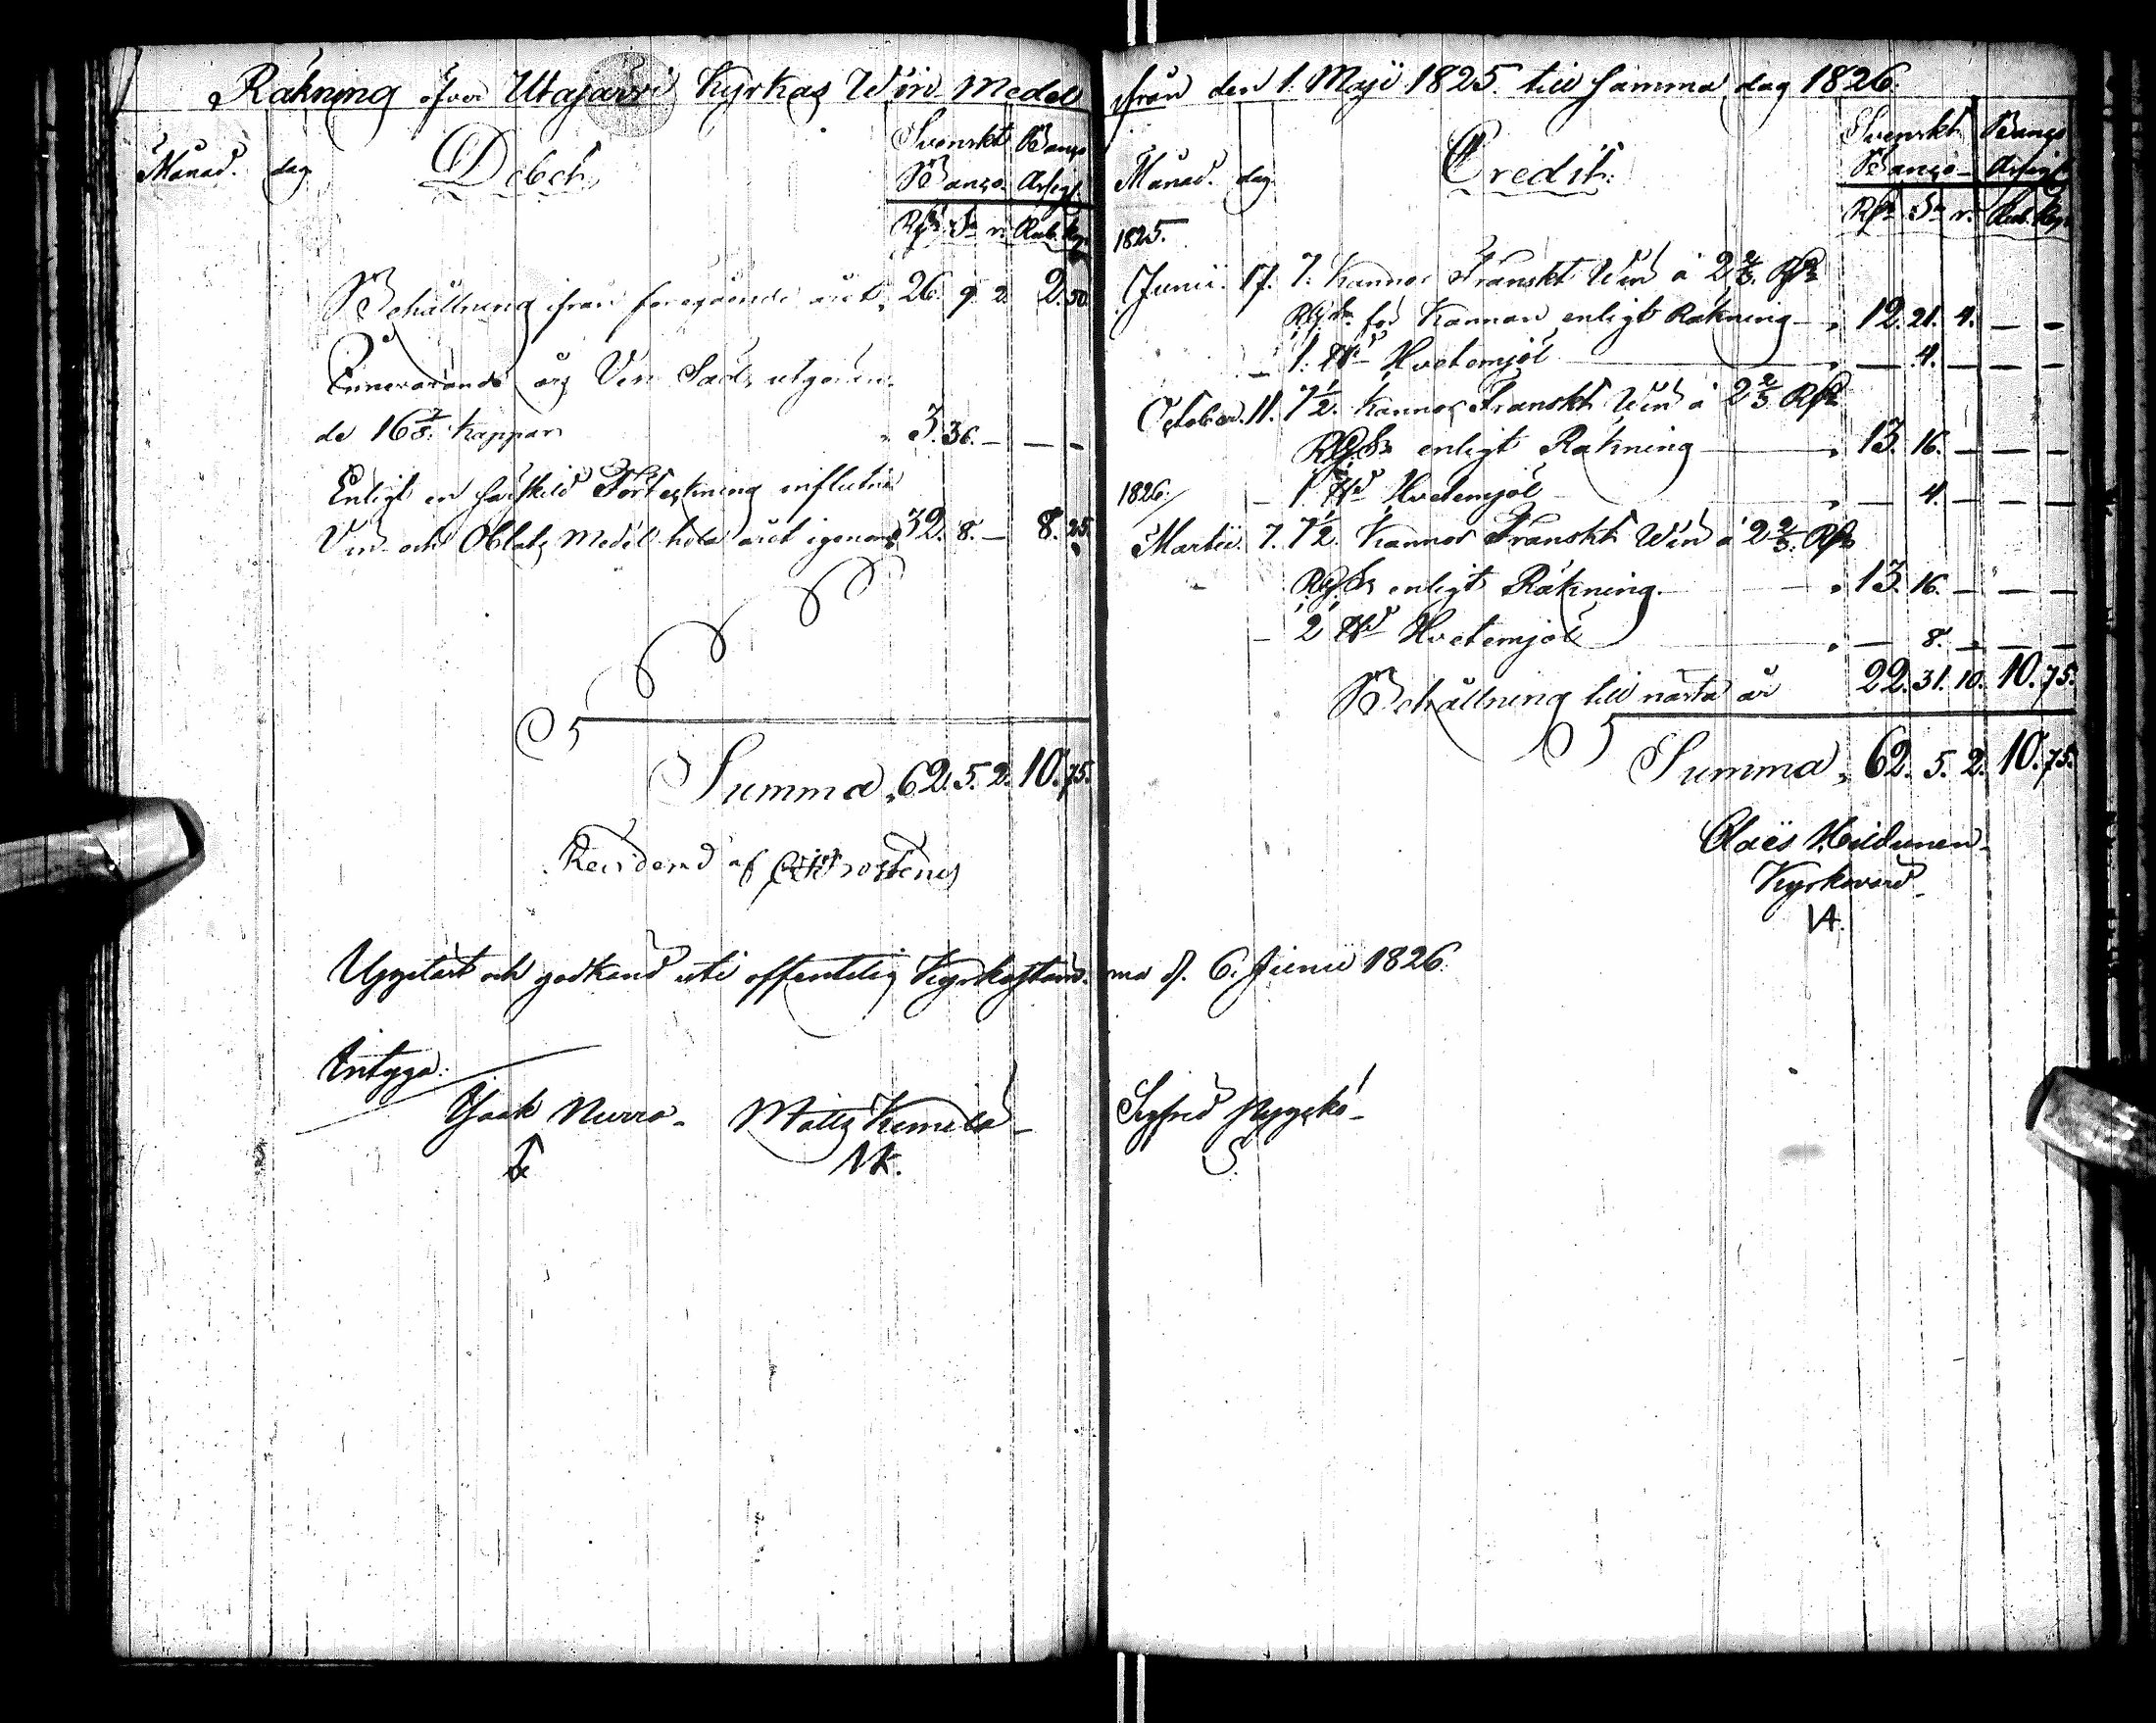 Räkning öfver Utajärvi Kyrkas Win Medel
Månad. dag. Debet. Svenskt Banco
Banco. Assign.
Rd S. r. Rub. Kop.
Behållning ifrån föregående året 26. 9. 2. 2. 50.
Innevarande års Vin Säd, utgöran-
de 16 kappar 3. 36. — — —
Enligt en särskild Förtekning influtne
Vin och Oblats Medel hela året igenom 32. 8. — 8. 25.
Summa 62. 5. 2. 10. 75.
Reviderad af
Uppläst och godkänd uti offentelig Kyrkostäm-
Intyga:
Isaak Nurro. Matts Kemilä
MK.
från den 1. Maji 1825. till samma dag 1826.
Månad. dag. Credit. Svenskt Banco
Banco Assign.
Rd S. r. Rub. Kop.
1825.
Junii. 17. 7. Kannor Franskt Win à 2 2/3. Rd
Rgs för Kannan enligt Räkning 12. 21. 4. — —
1. ℔ Hvetemjöl — 4. — — —
October. 11. 7 1/2. Kannor Franskt Win à 2 2/3 Rd
Rgs enligt Räkning 13. 16. — — —
1826. 1 ℔ Hvetemjöl — 4. — — —
Martii. 7. 7 1/2. Kannor Franskt Win à 2 2/3. Rd
Rgs enligt Räkning. 13. 16. — — —
2 ℔ Hvetemjöl — 8. — — —
Behållning till nästa år 22. 31. 10. 10. 75.
Summa 62. 5. 2. 10. 75.
Claës Heidunen
Kyrkovärd
ma d. 6. Junii 1826.
Sigfred Nygskö
S.